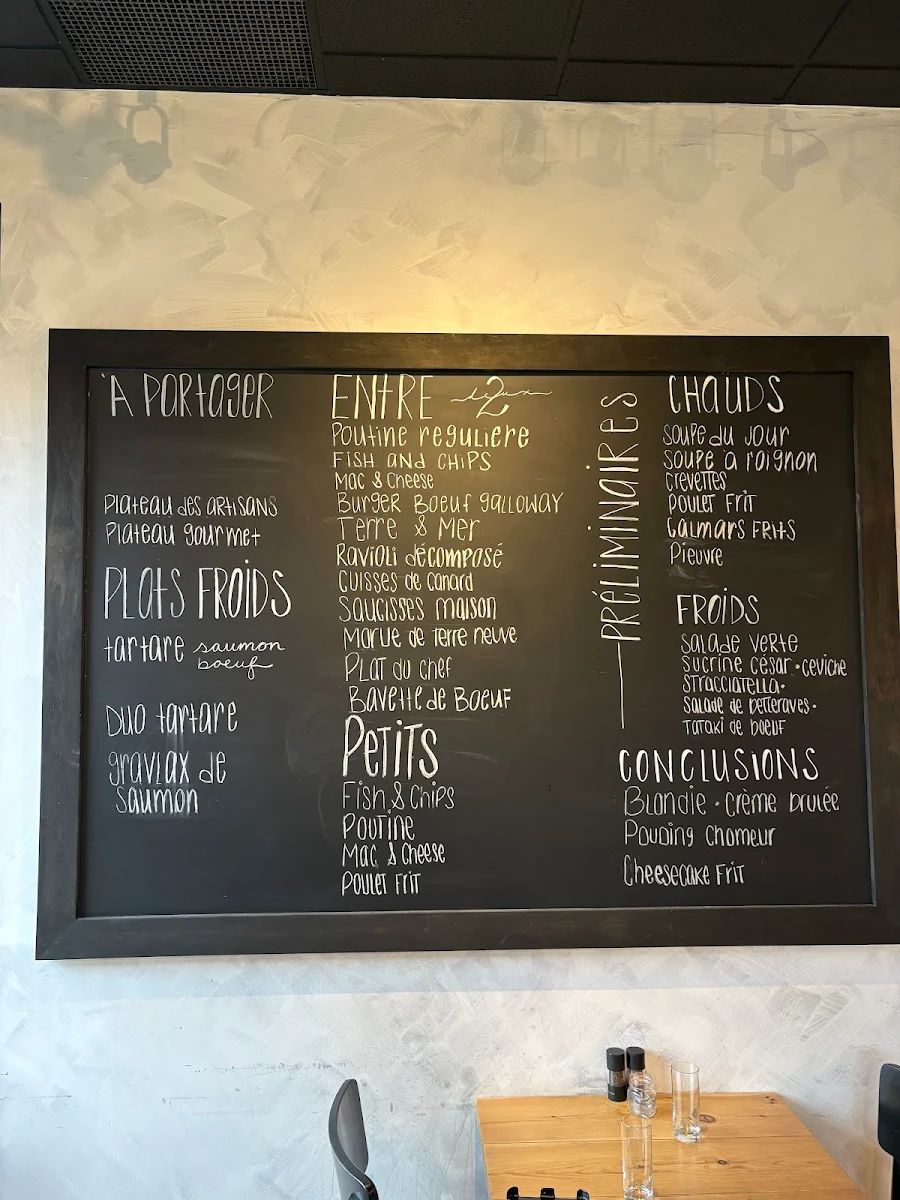 À PARTAGER
Plateau des artisans
Plateau gourmet
PLATS FROIDS
tartare saumon
boeuf
DUO tartare
gravlax de
saumon
ENTRE 2
Poutine reguliere
FISH AND CHIPS
Mac & Cheese
Burger Boeuf galloway
Terre & Mer
Ravioli décomposé
Cuisses de canard
Saucisses maison
Morue de terre neuve
PLAT du chef
Bavette de Boeuf
Petits
Fish & Chips
Poutine
Mac & Cheese
Poulet Frit
PRÉLIMINAIRES
CHAUDS
soupe du jour
soupe à l'oignon
crevettes
Poulet Frit
Calmars Frits
Pieuvre
FROIDS
Salade verte
Sucrine césar · ceviche
Stracciatella ·
Salade de betteraves ·
Tataki de boeuf
CONCLUSIONS
Blondie · crème brulée
Pouding chomeur
Cheesecake Frit